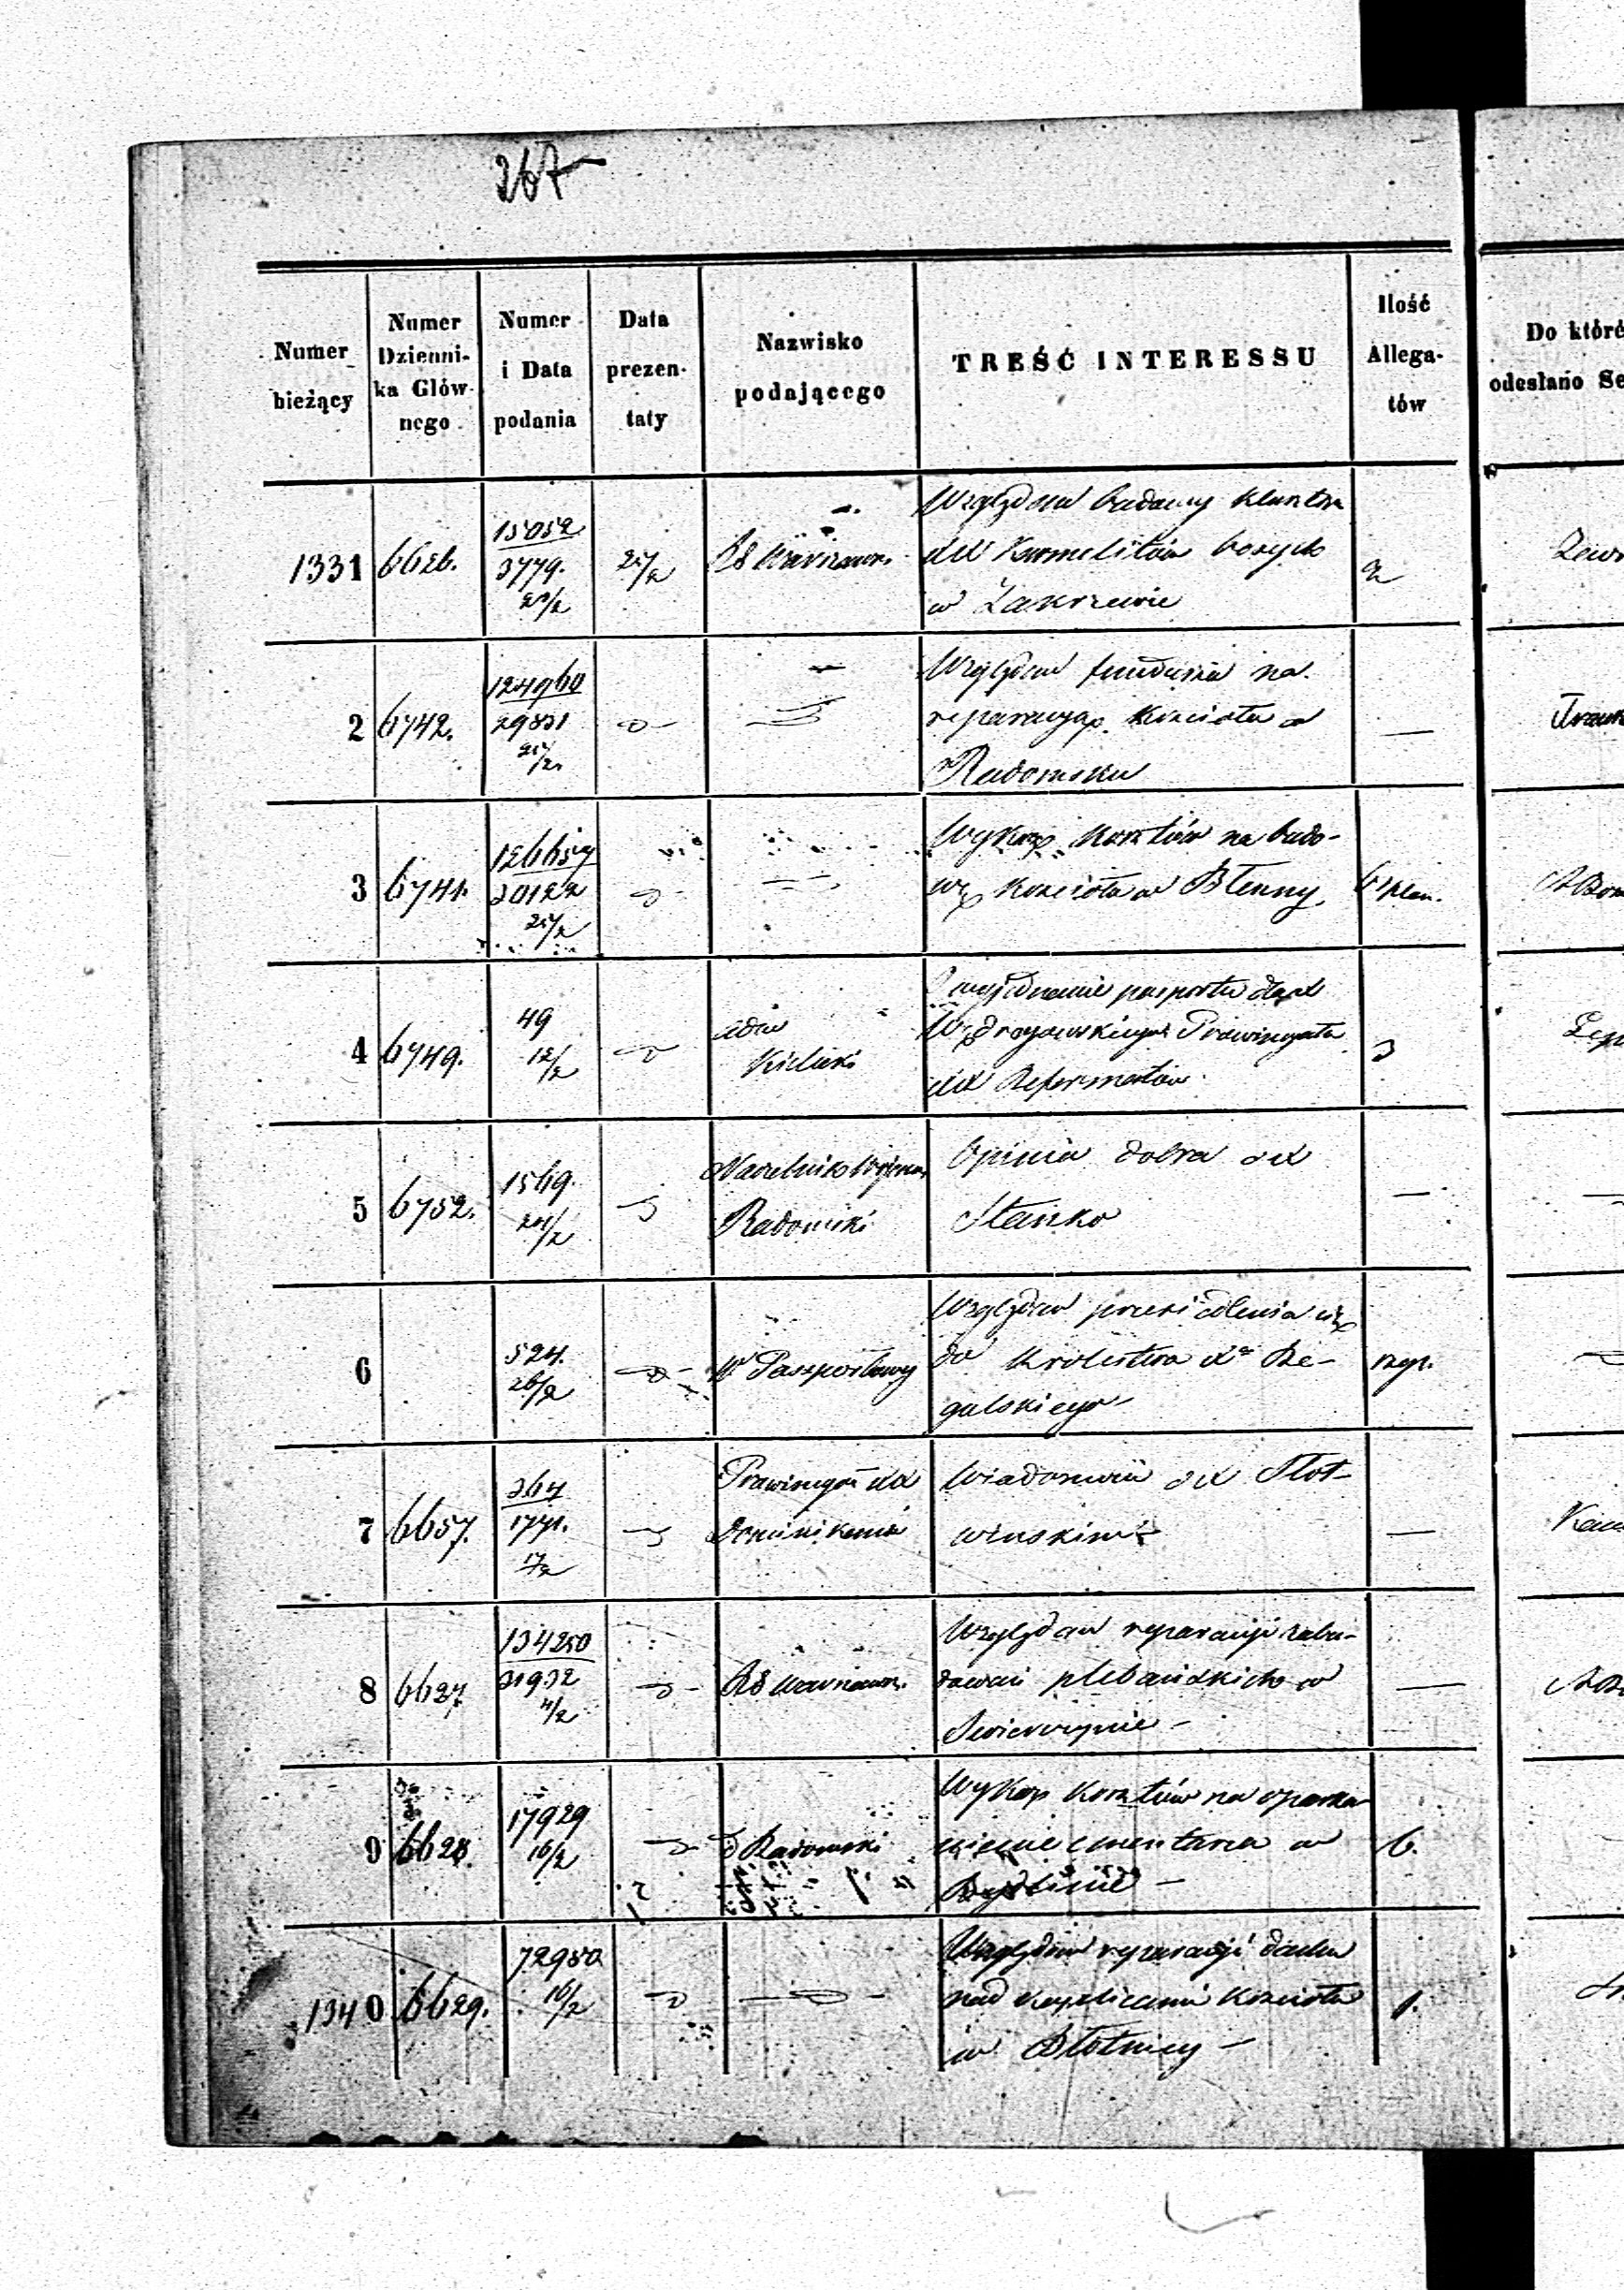 267
Numer bieżący
Numer Dzienni- ka Głów- nego
Numer i Data podania
Data prezen- taty
Nazwisko podającego
TREŚĆ INTERESSU
Ilość Allega- tów
Do któré
odesłano Se
1331 6626. 15052 3779. 27/2 Względem budowy klasztoru
XX Karmelitów bosych
w Zakrzewie
2 6742. 29831 Względem funduszu na
reparacyą Kościoła w
Radomsku
3 6741. 126657 30122 27/2 Wykaz kosztów na budo-
wę kościoła w Błenny
4 6749. 49 12/2 Adm Kielecki wyjednanie pasportu dla X
Prowincyała
XX Reformatów
5 6752. 1569. 24/2 Naczelnik Wojenny Radomski Opinia dobra o X
Stańko
6 524. 26/2 W Paszportowy Względem przesiedlenia się
do Królestwa Xa Re-
gulskiego
7 6657. 364 1771. 17/2 Prowincyał XX Dominikanów Wiadomość o X Słot-
wińskim
8 6627. 134250 31932 4/2 Względem reparacyi zabu-
dowań plebańskich w
9 6628. 17929 16/2 Radomski Wykaz kosztów na oparka-
nienie cmentarza w
1340 6629. 72950 16/2 Względem reparacyi dachu
nad kaplicami Kościoła 1.
w Błotnicy